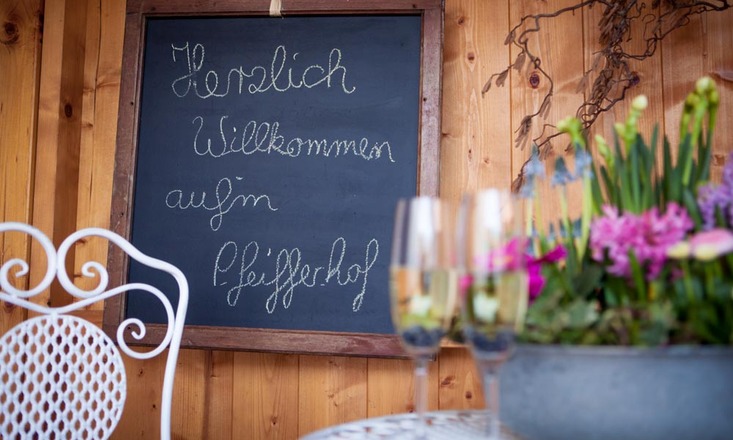 Herzlich
Willkommen
aufm
Pfeifferhof